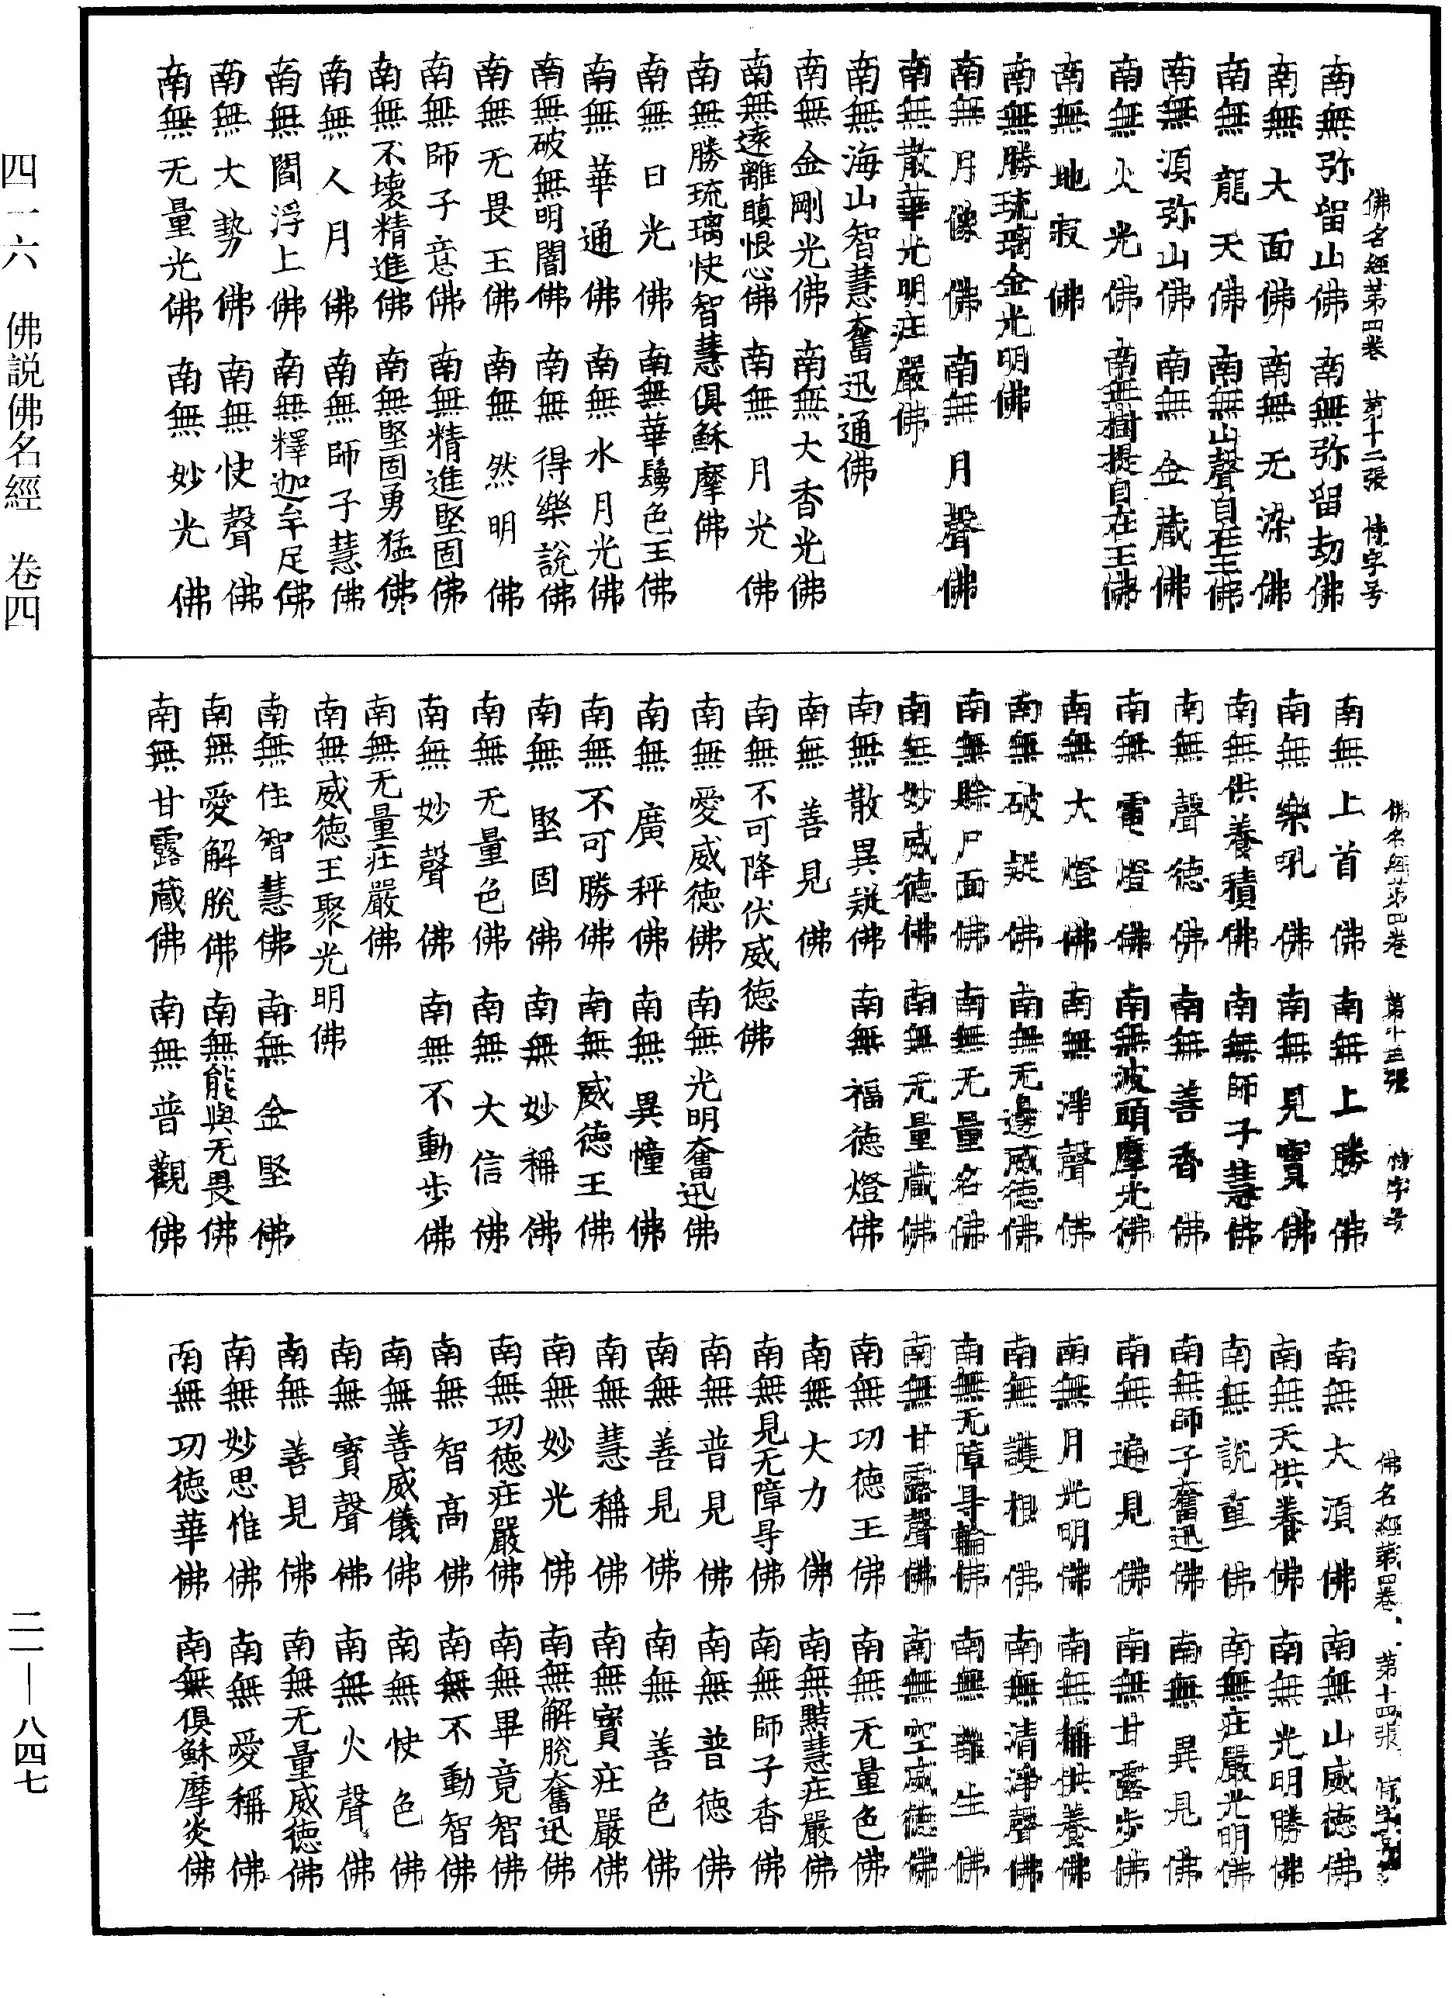 佛名經第四卷 第十二張 待字号
南無弥留山佛 南無弥留劫佛
南無大面佛 南無无染佛
南無龍天佛 南無山聲自在王佛
南無須弥山佛 南無金藏佛
南無火光佛 南無樹提自在王佛
南無地寂佛
南無勝琉璃金光明佛
南無月像佛 南無月聲佛
南無散華光明庄嚴佛
南無海山智慧奮迅通佛
南無金剛光佛 南無大香光佛
南無遠離瞋恨心佛 南無月光佛
南無勝琉璃快智慧俱穌摩佛
南無日光佛 南無華鬘色王佛
南無華通佛 南無水月光佛
南無破無明闇佛 南無得樂說佛
南無无畏王佛 南無然明佛
南無師子意佛 南無精進堅固佛
南無不壞精進佛 南無堅固勇猛佛
南無人月佛 南無師子慧佛
南無閻浮上佛 南無釋迦牟尼佛
南無大勢佛 南無快聲佛
南無无量光佛 南無妙光佛
佛名經第四卷 第十三張 待字号
南無上首佛 南無上勝佛
南無樂吼佛 南無見寶佛
南無供養積佛 南無師子慧佛
南無聲德佛 南無善香佛
南無電燈佛 南無波頭摩光佛
南無大燈佛 南無淨聲佛
南無破疑佛 南無无邊威德佛
南無賒尸面佛 南無无量名佛
南無妙威德佛 南無无量藏佛
南無散異疑佛 南無福德燈佛
南無善見佛
南無不可降伏威德佛
南無愛威德佛 南無光明奮迅佛
南無廣秤佛 南無異幢佛
南無不可勝佛 南無威德王佛
南無堅固佛 南無妙稱佛
南無无量色佛 南無大信佛
南無妙聲佛 南無不動步佛
南無无量庄嚴佛
南無威德王聚光明佛
南無住智慧佛 南無金堅佛
南無愛解脫佛 南無能與无畏佛
南無甘露藏佛 南無普觀佛
佛名經第四卷 第十四張
南無大須佛 南無山威德佛
南無天供養佛 南無光明勝佛
南無說重佛 南無庄嚴光明佛
南無師子奮迅佛 南無異見佛
南無遍見佛 南無甘露步佛
南無月光明佛 南無稱供養佛
南無護根佛 南無清淨聲佛
南無无障㝵輪佛 南無離生佛
南無甘露聲佛 南無空威德佛
南無功德王佛 南無无量色佛
南無大力佛 南無黠慧庄嚴佛
南無見无障㝵佛 南無師子香佛
南無普見佛 南無普德佛
南無善見佛 南無善色佛
南無慧稱佛 南無寶庄嚴佛
南無妙光佛 南無解脫奮迅佛
南無功德庄嚴佛 南無畢竟智佛
南無智高佛 南無不動智佛
南無善威儀佛 南無快色佛
南無寶聲佛 南無火聲佛
南無善見佛 南無无量威德佛
南無妙思惟佛 南無愛稱佛
南無功德華佛 南無俱穌摩炎佛
四一六 佛說佛名經 卷四
二一—八四七